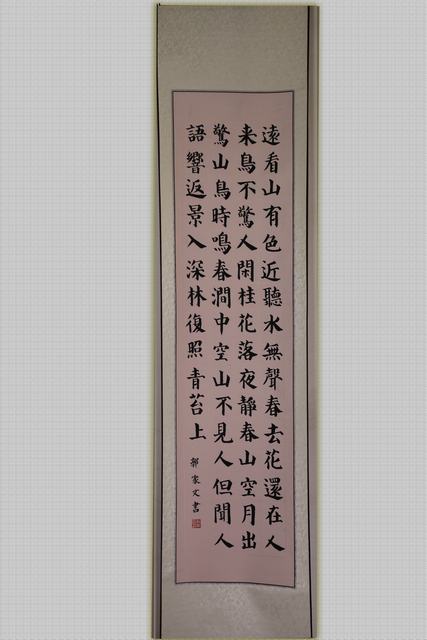 遠看山有色近聽水無聲春去花還在人
来鳥不驚人閑桂花落夜靜春山空月出
驚山鳥時鳴春澗中空山不見人但聞人
語響返景入深林復照青苔上
家文書